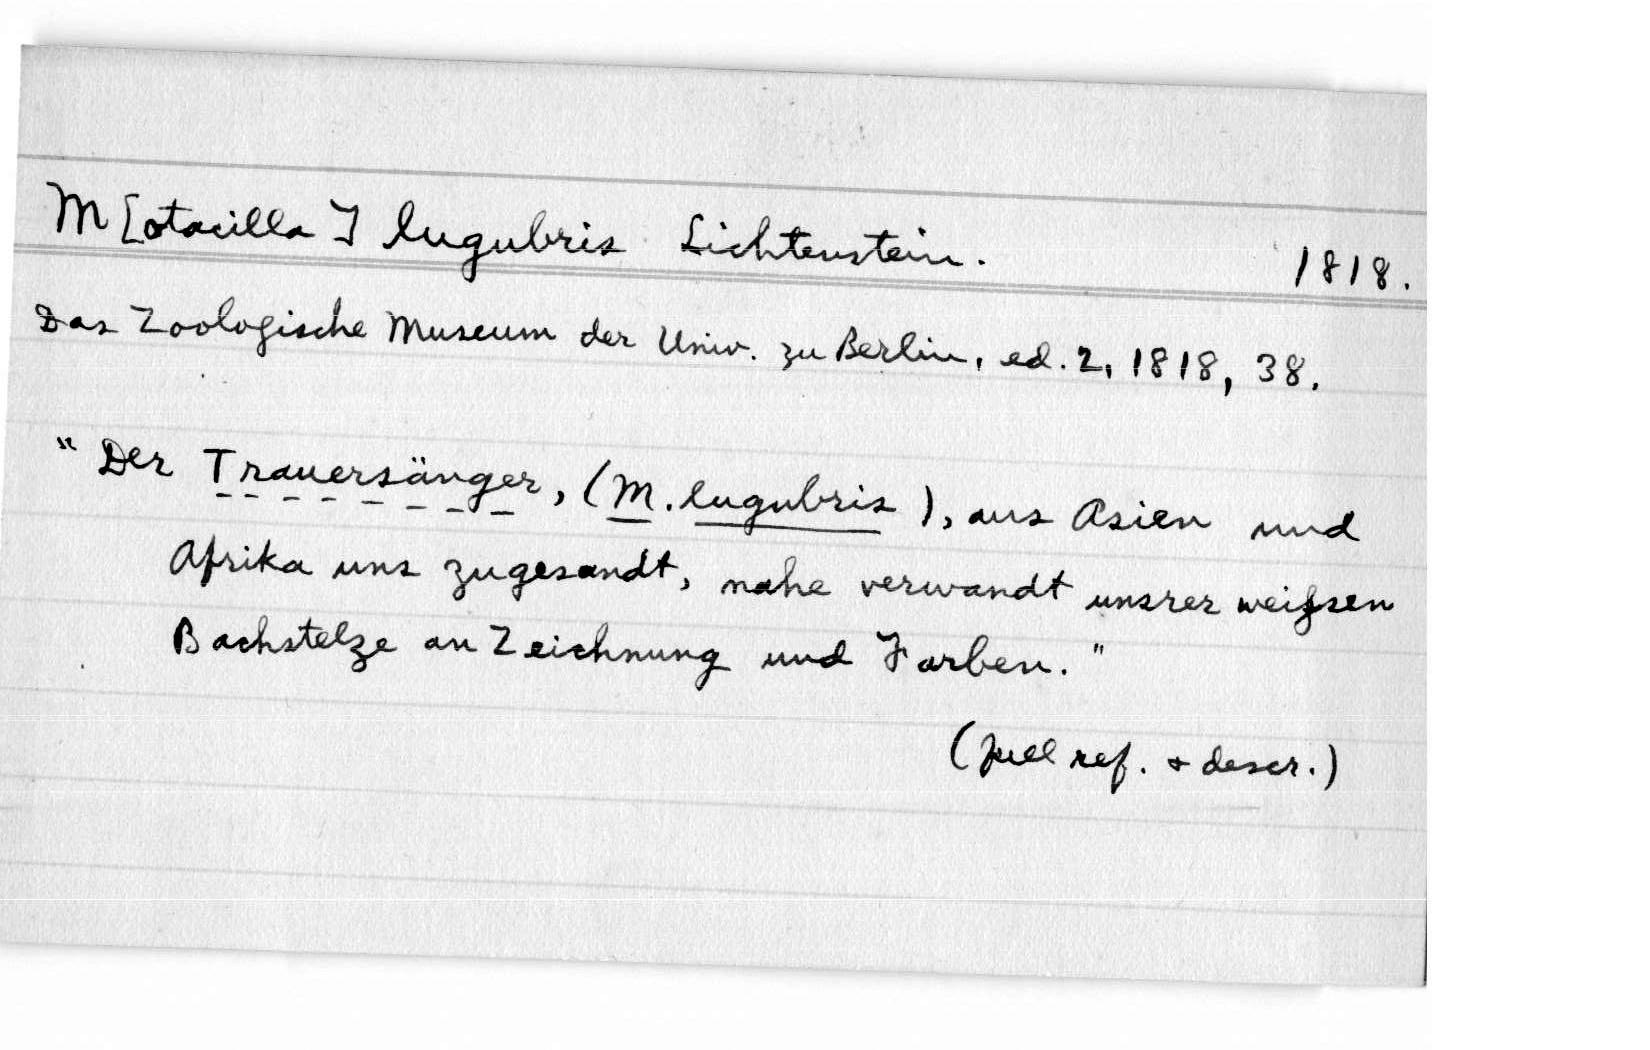 M[otacilla] lugubris Lichtenstein. 1818.
Das Zoologische Museum der Univ. zu Berlin, ed. 2, 1818, 38.
"Der Trauersänger, (M. lugubris), aus Asien und
Afrika uns zugesandt, nahe verwandt unsrer weißsen
Bachstelze an Zeichnung und Farben."
(full ref. & descr.)